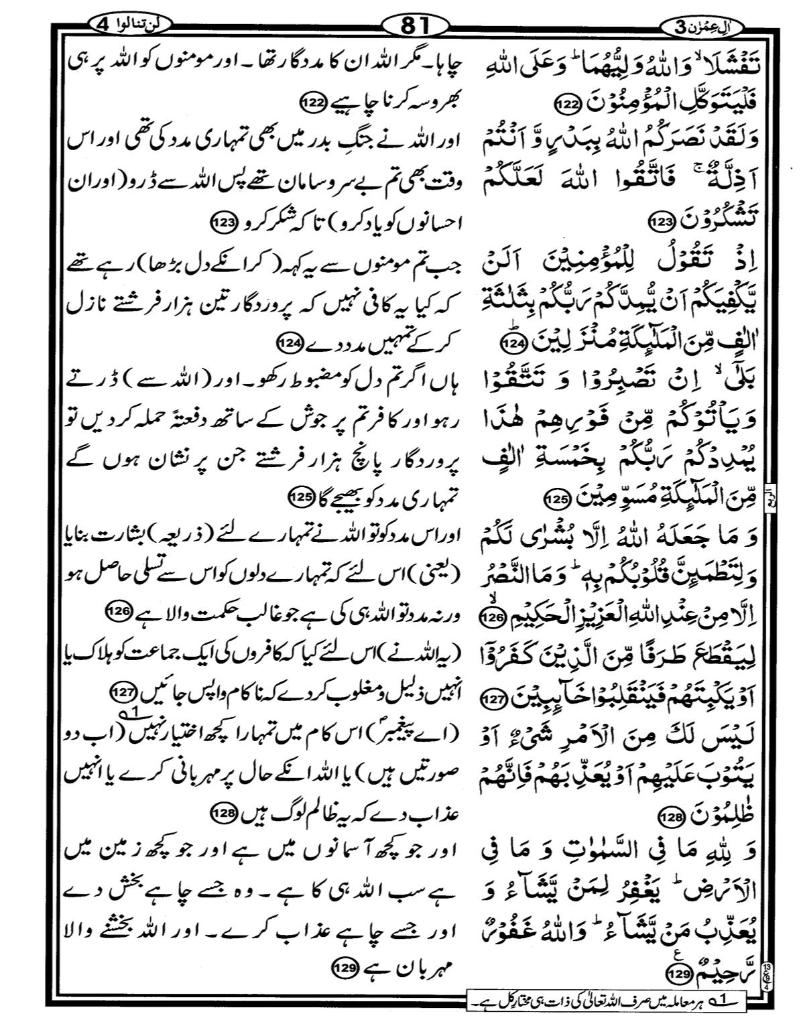 اٰلِ عِمْرٰن 3
81
لن تنالوا 4
تَفْشَلَا ۙ وَاللّٰهُ وَلِيُّهُمَا ؕ وَعَلَى اللّٰهِ
فَلْيَتَوَكَّلِ الْمُؤْمِنُوْنَ 122
وَلَقَدْ نَصَرَكُمُ اللّٰهُ بِبَدْرٍ وَّ اَنْتُمْ
اَذِلَّةٌ ۚ فَاتَّقُوا اللّٰهَ لَعَلَّكُمْ
تَشْكُرُوْنَ 123
اِذْ تَقُوْلُ لِلْمُؤْمِنِيْنَ اَلَنْ
يَّكْفِيَكُمْ اَنْ يُّمِدَّكُمْ رَبُّكُمْ بِثَلٰثَةِ
اٰلٰفٍ مِّنَ الْمَلٰٓئِكَةِ مُنْزَلِيْنَ ؕ 124
بَلٰٓى ۙ اِنْ تَصْبِرُوْا وَ تَتَّقُوْا
وَيَاْتُوْكُمْ مِّنْ فَوْرِهِمْ هٰذَا
يُمْدِدْكُمْ رَبُّكُمْ بِخَمْسَةِ اٰلٰفٍ
مِّنَ الْمَلٰٓئِكَةِ مُسَوِّمِيْنَ 125
وَ مَا جَعَلَهُ اللّٰهُ اِلَّا بُشْرٰى لَكُمْ
وَلِتَطْمَئِنَّ قُلُوْبُكُمْ بِهٖ ؕ وَمَا النَّصْرُ
اِلَّا مِنْ عِنْدِ اللّٰهِ الْعَزِيْزِ الْحَكِيْمِ ۙ 126
لِيَقْطَعَ طَرَفًا مِّنَ الَّذِيْنَ كَفَرُوْٓا
اَوْ يَكْبِتَهُمْ فَيَنْقَلِبُوْا خَآئِبِيْنَ 127
لَيْسَ لَكَ مِنَ الْاَمْرِ شَىْءٌ اَوْ
يَتُوْبَ عَلَيْهِمْ اَوْ يُعَذِّبَهُمْ فَاِنَّهُمْ
ظٰلِمُوْنَ 128
وَ لِلّٰهِ مَا فِى السَّمٰوٰتِ وَ مَا فِى
الْاَرْضِ ؕ يَغْفِرُ لِمَنْ يَّشَآءُ وَ
يُعَذِّبُ مَنْ يَّشَآءُ ؕ وَاللّٰهُ غَفُوْرٌ
رَّحِيْمٌ 129 ع
چاہا۔ مگر اللہ ان کا مددگار تھا ۔ اور مومنوں کو اللہ پر ہی
بھروسہ کرنا چاہیے 122
اور اللہ نے جنگِ بدر میں بھی تمہاری مدد کی تھی اور اس
وقت بھی تم بے سر و سامان تھے پس اللہ سے ڈرو (اور ان
احسانوں کو یاد کرو) تا کہ شکر کرو 123
جب تم مومنوں سے یہ کہہ (کر انکے دل بڑھا) رہے تھے
کہ کیا یہ کافی نہیں کہ پروردگار تین ہزار فرشتے نازل
کر کے تمہیں مدد دے 124
ہاں اگر تم دل کو مضبوط رکھو۔ اور (اللہ سے) ڈرتے
رہو اور کافر تم پر جوش کے ساتھ دفعتۂ حملہ کر دیں تو
پروردگار پانچ ہزار فرشتے جن پر نشان ہوں گے
تمہاری مدد کو بھیجے گا 125
اور اس مدد کو تو اللہ نے تمہارے لئے (ذریعہ) بشارت بنایا
(یعنی) اس لئے کہ تمہارے دلوں کو اس سے تسلی حاصل ہو
ورنہ مدد تو اللہ ہی کی ہے جو غالب حکمت والا ہے 126
(یہ اللہ نے) اس لئے کیا کہ کافروں کی ایک جماعت کو ہلاک یا
انہیں ذلیل و مغلوب کر دے کہ ناکام واپس جائیں 127
(اے پیغمبرؐ) اس کام میں تمہارا کچھ اختیار نہیں 1 (اب دو
صورتیں ہیں) یا اللہ انکے حال پر مہربانی کرے یا انہیں
عذاب دے کہ یہ ظالم لوگ ہیں 128
اور جو کچھ آسمانوں میں ہے اور جو کچھ زمین میں
ہے سب اللہ ہی کا ہے ۔ وہ جسے چاہے بخش دے
اور جسے چاہے عذاب کرے ۔ اور اللہ بخشنے والا
مہربان ہے 129
الربع
1 ہر معاملہ میں صرف اللہ تعالیٰ کی ذات ہی مختارِ کل ہے۔